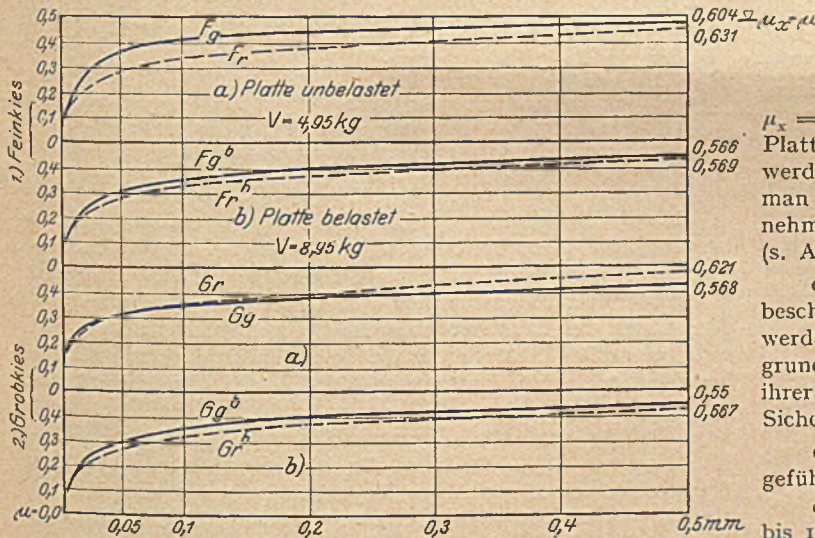 0,5
0,4
0,3
0,2
0,1
0
0,4
0,3
0,2
0,1
0
0,4
0,3
0,2
0,1
0
0,4
0,3
0,2
0,1
μ-0,0
1.) Feinkies
2.) Grobkies
Fg
Fr
a) Platte unbelastet
V=4,95 kg
0,604
0,631
Fg b
Fr b
b) Platte belastet
V=8,95 kg
0,566
0,569
Gr
Gg
a)
0,621
0,568
Gg b
Gr b
b)
0,55
0,567
0,05
0,1
0,2
0,3
0,4
0,5mm
μx = μ
μx =
Platt
werd
man
nehm
(s. A
besch
werd
grund
ihrer
Siche
gefüh
bis 1